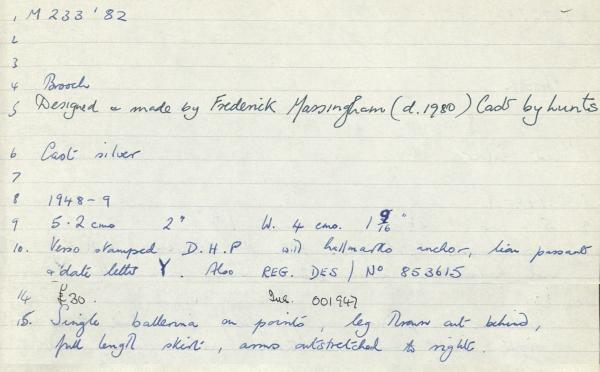 1 M 233 '82
2
3
4 Brooch
5 Designed & made by Frederick Massingham (d. 1980) Cast by Lunts
6 Cast silver
7
8 1948-9
9 5.2 cms 2" W. 4 cms. 1 9/16"
10. Verso stamped D.H.P with hallmarks anchor, lion passant
& date letter Y. Also REG. DES / No 853615
14 £30. Inv. 001947
15. Single ballerina on points, leg thrown out behind,
full length skirt, arms outstretched to right.